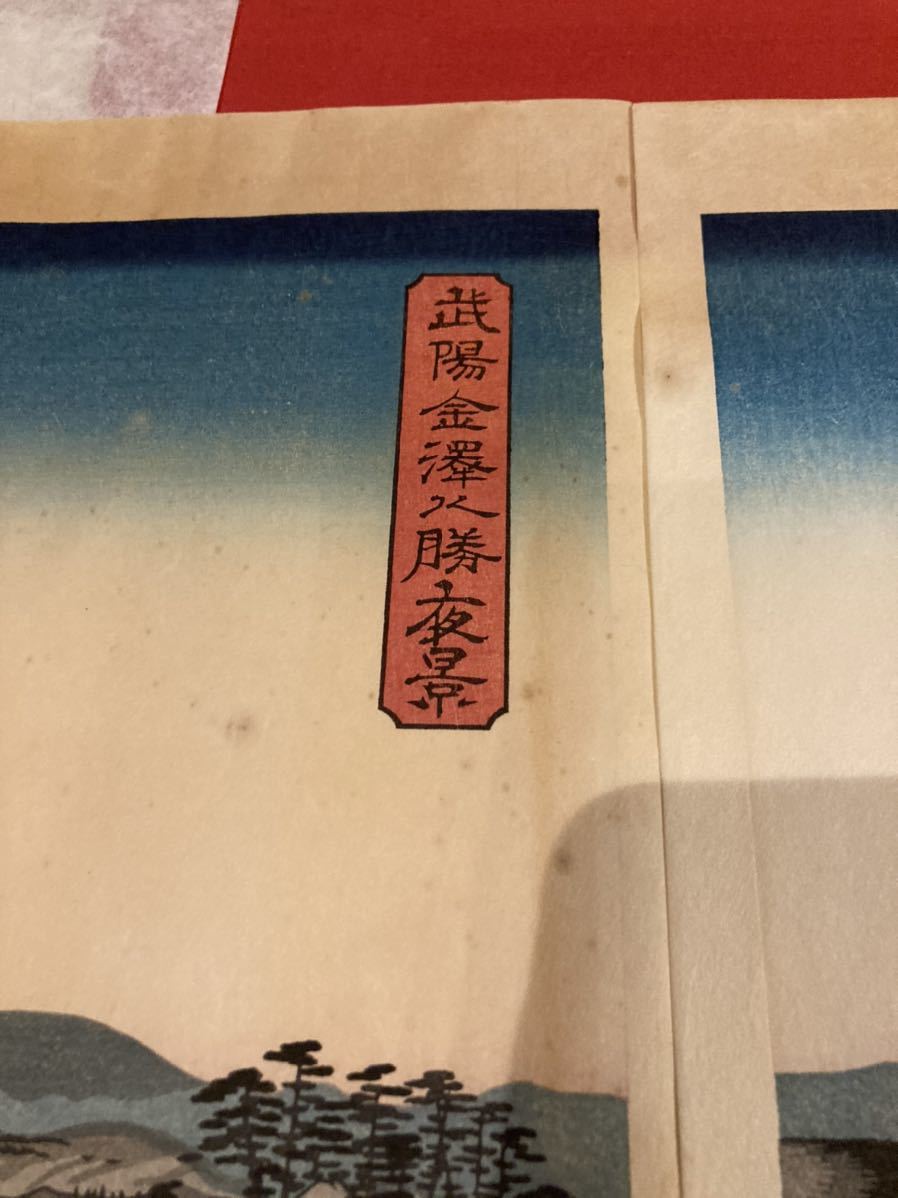 武陽金澤八勝夜景